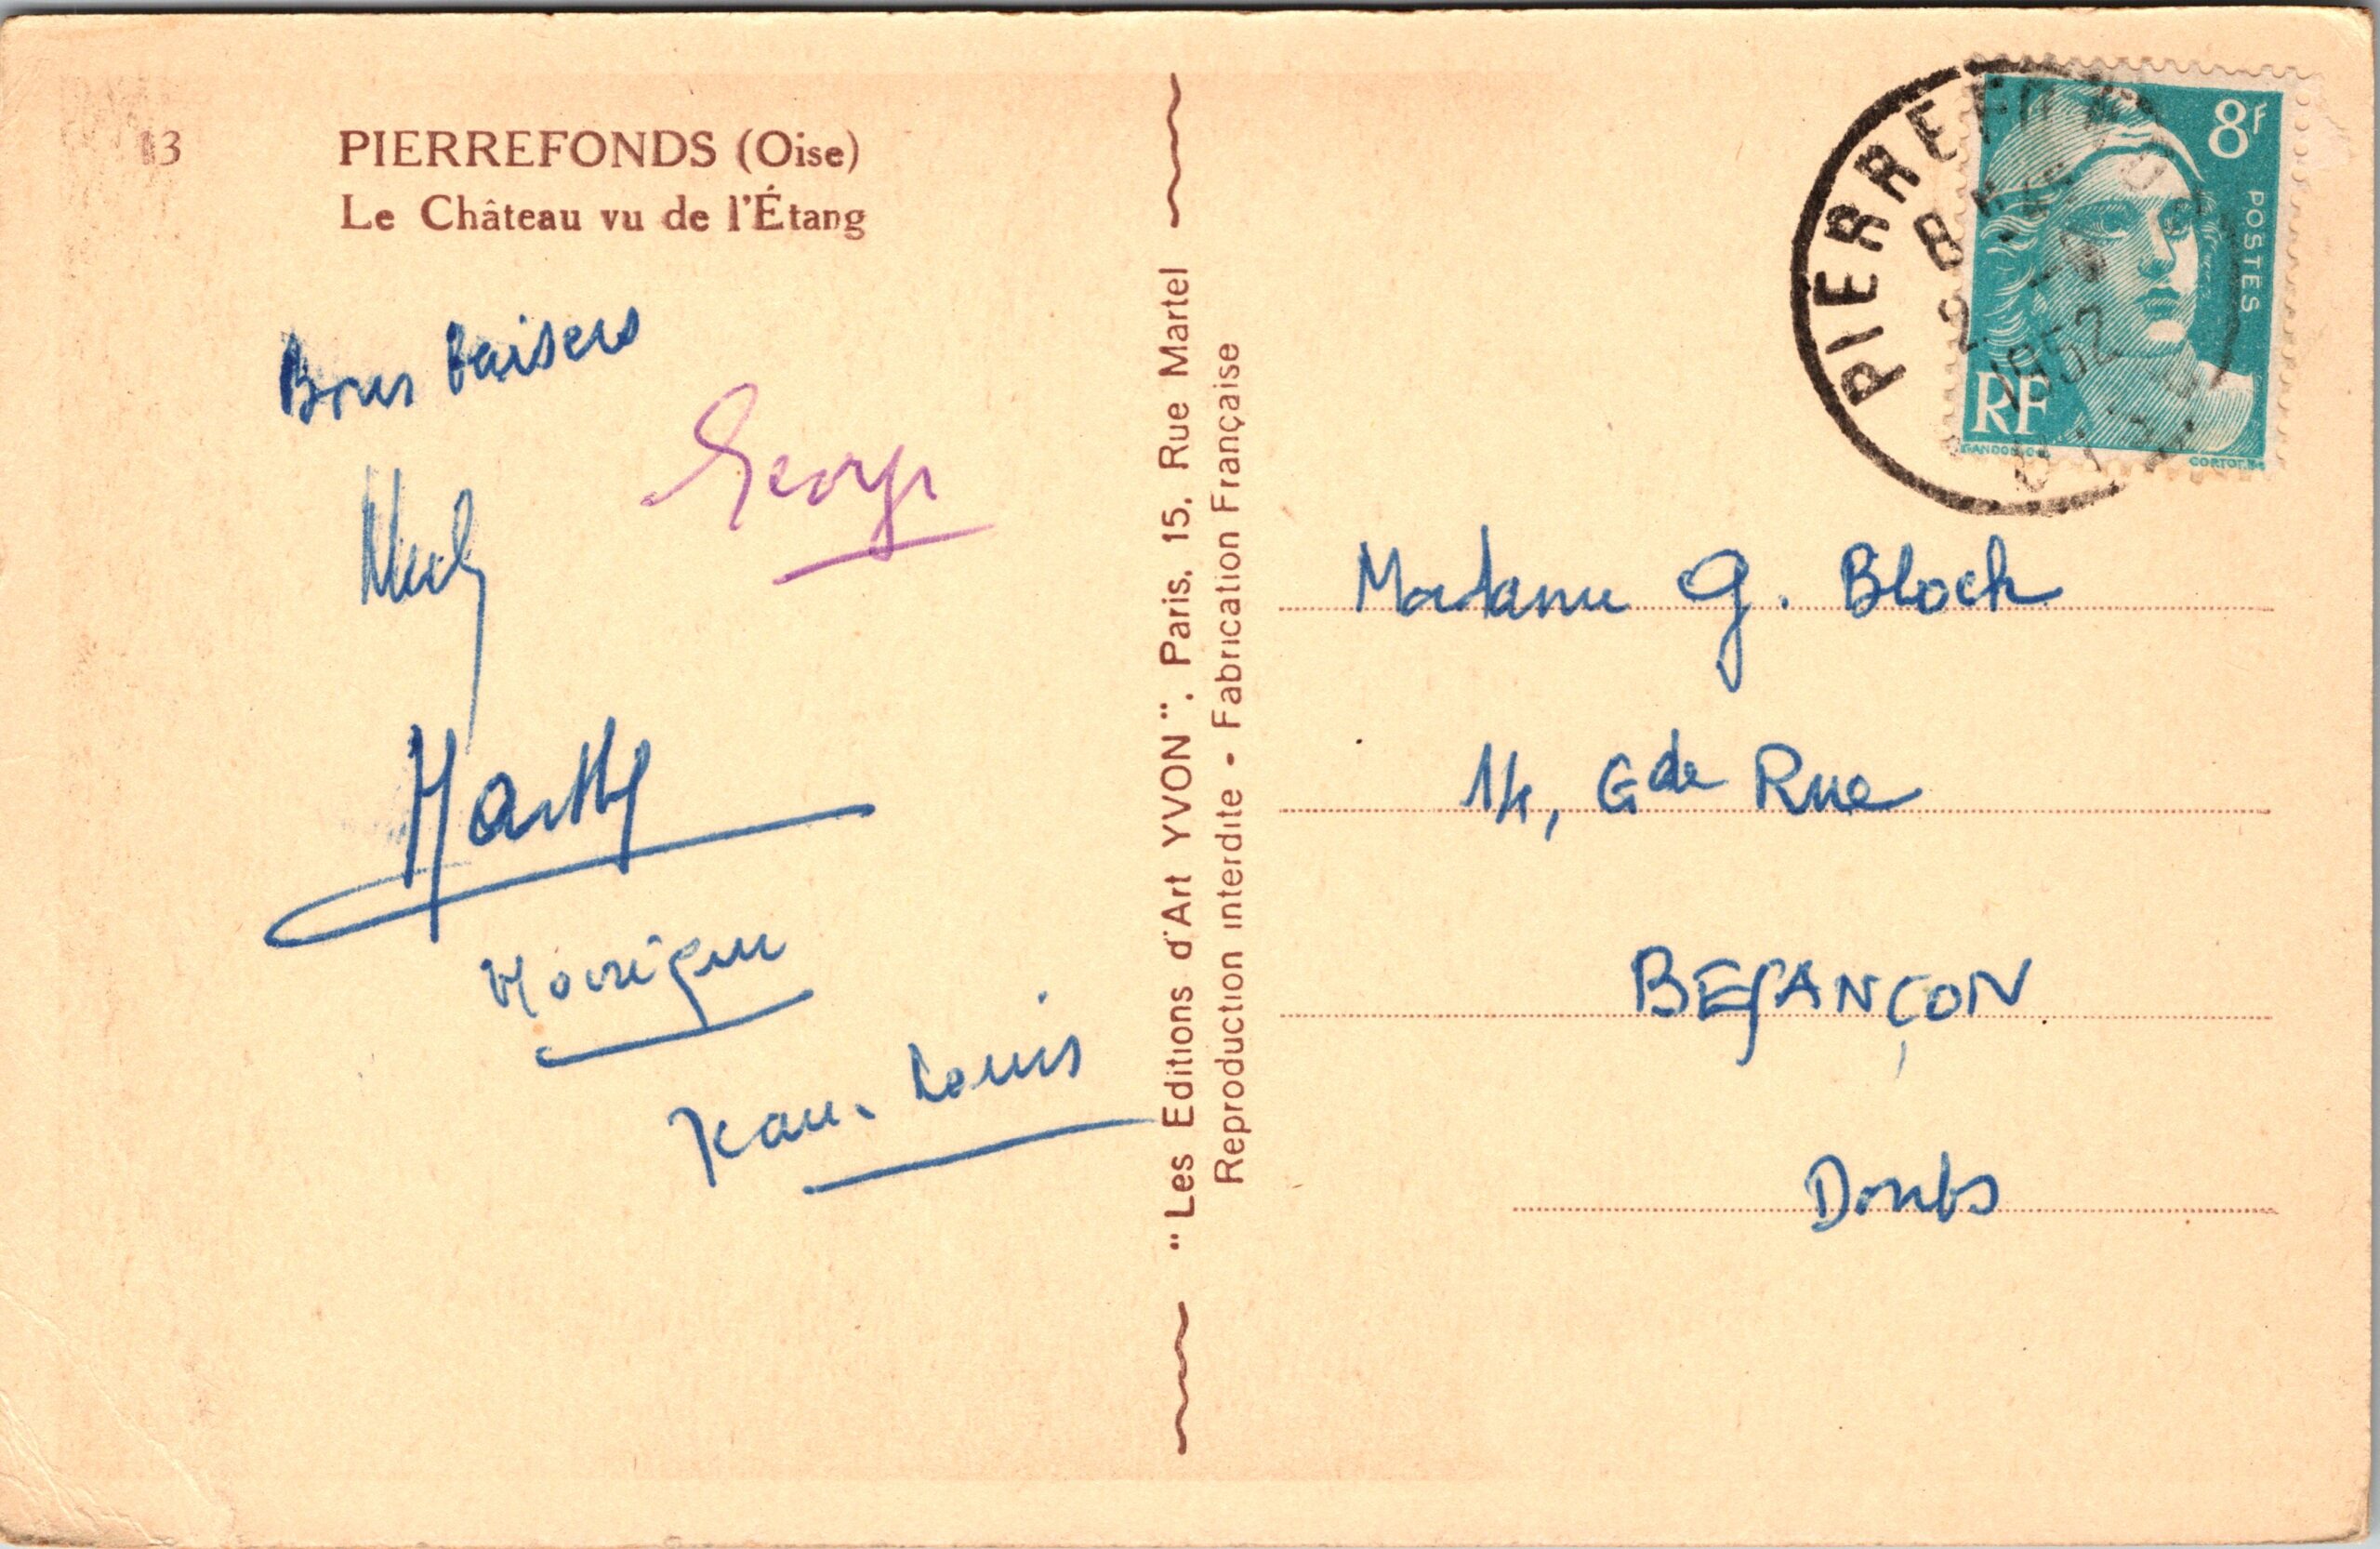 13
PIERREFONDS (Oise)
Le Château vu de l'Étang
Bons baisers
Georges
Marthy
Jean-Louis
"Les Editions d'Art YVON", Paris, 15, Rue Martel
Reproduction interdite - Fabrication Française
PIERREFONDS
1952
8F
POSTES
RF
GANDON
CORTOT
Madame G. Bloch
14, Gde Rue
BESANÇON
Doubs